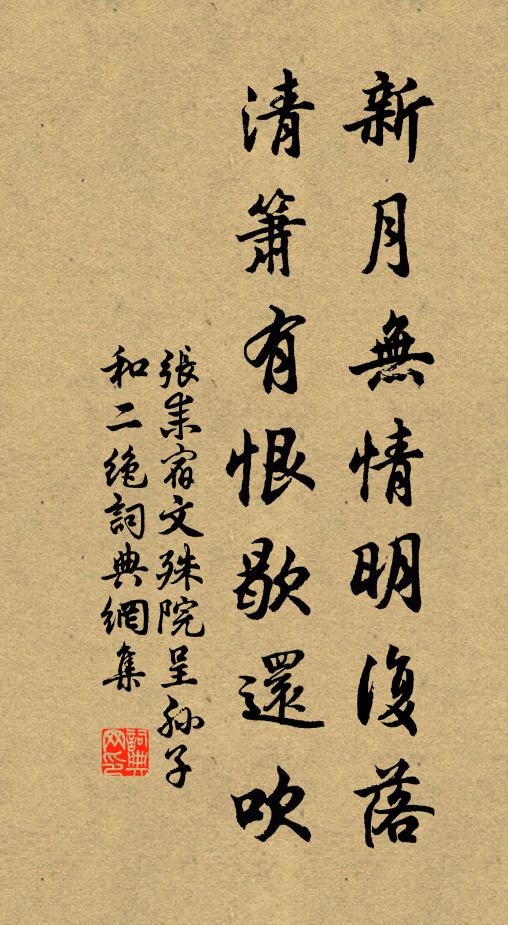 新月無情明復落
清簫有恨歇還吹
張耒宿文殊院呈孙子
和二絶詞典網集
詞典網印